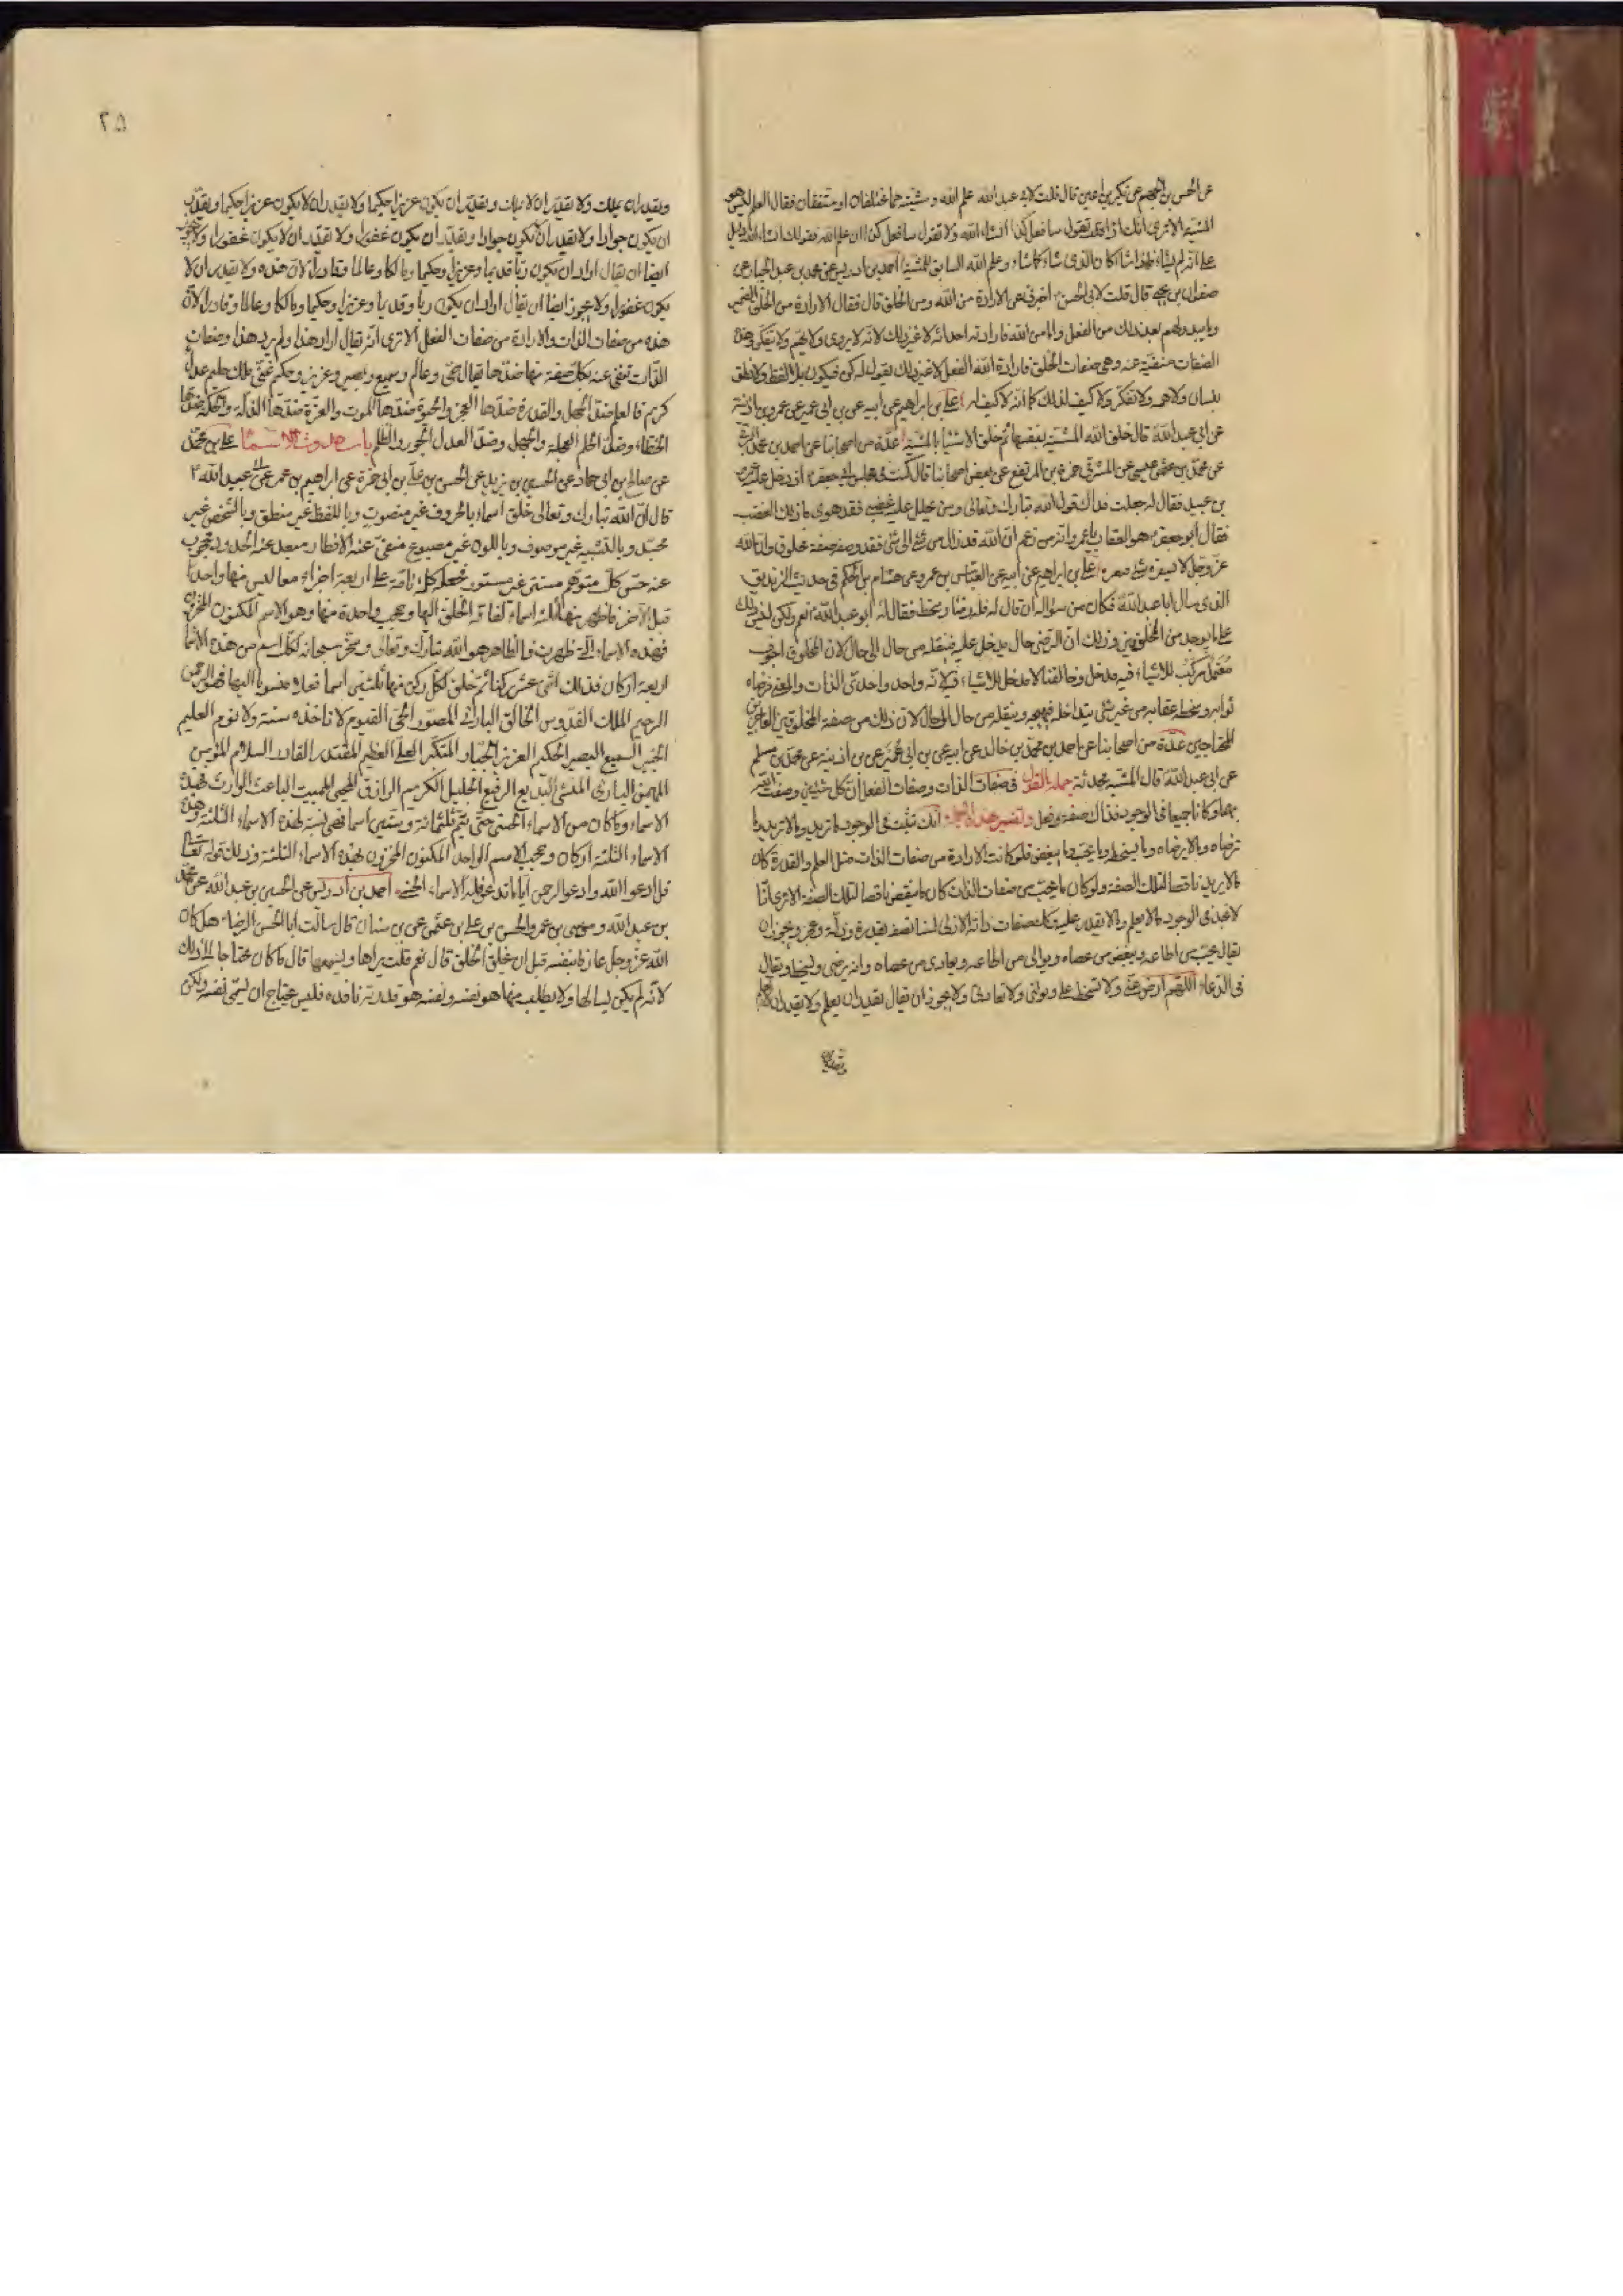 عن الحسن بن الجهم عن بكير بن اعين قال قلت لابي عبد الله علم الله ومشيته هما مختلفان او متفقان فقال العلم ليس هو
المشية الا ترى انك تقول سافعل كذا انشاء الله ولا تقول سافعل كذا ان علم الله فقولك انشاء الله دليل
على انه لم يشاء فاذا شاء كان الذي شاء كما شاء وعلم الله السابق للمشية احمد بن ادريس عن محمد بن عبد الجبار عن
صفوان بن يحيى قال قلت لابي الحسن اخبرني عن الارادة من الله ومن الخلق قال فقال الارادة من الخلق الضمير
وما يبدو لهم بعد ذلك من الفعل واما من الله فارادته احداثه لا غير ذلك لانه لا يروي ولا يهم ولا يتفكر وهذه
الصفات منفية عنه وهي صفات الخلق فارادة الله الفعل لا غير ذلك يقول له كن فيكون بلا لفظ ولا نطق
بلسان ولا همة ولا تفكر ولا كيف لذلك كما انه لا كيف له علي بن ابراهيم عن ابيه عن بن ابي عمير عن عمر بن اذينة
عن ابي عبد الله قال خلق الله المشية بنفسها ثم خلق الاشياء بالمشية عدة من اصحابنا عن احمد بن محمد البرقي
عن محمد بن عيسى عن المشرقي حمزة بن المرتفع عن بعض اصحابنا قال كنت في مجلس ابي جعفر اذ دخل عليه عمرو
بن عبيد فقال له جعلت فداك قول الله تبارك وتعالى ومن يحلل عليه غضبي فقد هوى ما ذلك الغضب
فقال ابو جعفر هو العقاب يا عمرو انه من زعم ان الله قد زال من شئ الى شئ فقد وصفه صفة مخلوق وان الله
عز وجل لا يستفزه شئ فيغيره علي بن ابراهيم عن ابيه عن العباس بن عمرو عن هشام بن الحكم في حديث الزنديق
الذي سال ابا عبد الله فكان من سؤاله ان قال له فله رضا وسخط فقال له ابو عبد الله نعم ولكن ليس ذلك
على ما يوجد من المخلوقين وذلك ان الرضى حال يدخل عليه فينقله من حال الى حال لان المخلوق اجوف
معتمل مركب للاشياء فيه مدخل وخالقنا لا مدخل للاشياء فيه لانه واحد واحدي الذات واحدي المعنى فرضاه
ثوابه وسخطه عقابه من غير شئ يتداخله فيهيجه وينقله من حال الى حال لان ذلك من صفة المخلوقين العاجزين
المحتاجين عدة من اصحابنا عن احمد بن محمد بن خالد عن ابيه عن بن ابي عمير عن بن اذينة عن محمد بن مسلم
عن ابي عبد الله قال المشية محدثة جملة القول في صفات الذات وصفات الفعل ان كل شيئين وصفت الله
بهما وكانا جميعا في الوجود فذلك صفة فعل وتفسير هذه الجملة انك تثبت في الوجود ما يريد وما لا يريد وما
يرضاه وما لا يرضاه وما يسخطه وما يحب وما يبغض فلو كانت الارادة من صفات الذات مثل العلم والقدرة كان
ما لا يريد ناقضا لتلك الصفة ولو كان ما يحب من صفات الذات كان ما يبغض ناقضا لتلك الصفة الا ترى انا
لا نجد في الوجود ما لا يعلم وما لا يقدر عليه وكذلك صفات ذاته الازلي لسنا نصفه بقدرة وعجز وذلة ويجوز ان
يقال يحب من اطاعه ويبغض من عصاه ويوالي من اطاعه ويعادي من عصاه وانه يرضى ويسخط ويقال
في الدعاء اللهم ارض عني ولا تسخط علي وتولني ولا تعادني ولا يجوز ان يقال يقدر ان يعلم ولا يقدر ان لا يعلم
٢٥
ويقدر ان يملك ولا يقدر ان لا يملك ويقدر ان يكون عزيزا حكيما ولا يقدر ان لا يكون عزيزا حكيما ويقدر
ان يكون جوادا ولا يقدر ان لا يكون جوادا ويقدر ان يكون غفورا ولا يقدر ان لا يكون غفورا ولا يجوز
ايضا ان يقال اراد ان يكون ربا وقديما وعزيزا وحكيما ومالكا وعالما وقادرا لان هذه ولا يقدر ان لا
يكون غفورا ولا يجوز ايضا ان يقال اراد ان يكون ربا وقديما وعزيزا وحكيما ومالكا وعالما وقادرا لان
هذه من صفات الذات والارادة من صفات الفعل الا ترى انه يقال اراد هذا ولم يرد هذا وصفات
الذات تنفي عنه بكل صفة منها ضدها يقال حي وعالم وسميع وبصير وعزيز وحكيم غني ملك حليم عدل
كريم فالعلم ضده الجهل والقدرة ضدها العجز والحيوة ضدها الموت والعزة ضدها الذلة والحكمة ضدها
الخطاء وضد الحلم العجلة والجهل وضد العدل الجور والظلم باب حدوث الاسماء علي بن محمد
عن صالح بن ابي حماد عن الحسين بن يزيد عن الحسن بن علي بن ابي حمزة عن ابراهيم بن عمر عن ابي عبد الله
قال ان الله تبارك وتعالى خلق اسما بالحروف غير متصوت وباللفظ غير منطق وبالشخص غير
مجسد وبالتشبيه غير موصوف وباللون غير مصبوغ منفي عنه الاقطار مبعد عنه الحدود محجوب
عنه حس كل متوهم مستتر غير مستور فجعله كلمة تامة على اربعة اجزاء معا ليس منها واحد
قبل الاخر فاظهر منها ثلثة اسماء لفاقة الخلق اليها وحجب واحدة منها وهو الاسم المكنون المخزون
فهذه الاسماء التي ظهرت فالظاهر هو الله تبارك وتعالى وسخر سبحانه لكل اسم من هذه الاسماء
اربعة اركان فذلك اثنى عشر ركنا ثم خلق لكل ركن منها ثلثين اسما فعلا منسوبا اليها فهو الرحمن
الرحيم الملك القدوس الخالق البارئ المصور الحي القيوم لا تاخذه سنة ولا نوم العليم
الخبير السميع البصير الحكيم العزيز الجبار المتكبر العلي العظيم المقتدر القادر السلام المؤمن
المهيمن البارئ المنشئ البديع الرفيع الجليل الكريم الرازق المحيي المميت الباعث الوارث فهذه
الاسماء وما كان من الاسماء الحسنى حتى تتم ثلثمائة وستين اسما فهي نسبة لهذه الاسماء الثلثة وهذه
الاسماء الثلثة اركان وحجب الاسم الواحد المكنون المخزون بهذه الاسماء الثلثة وذلك قوله تعالى
قل ادعوا الله او ادعوا الرحمن ايا ما تدعوا فله الاسماء الحسنى احمد بن ادريس عن الحسين بن عبد الله عن محمد
بن عبد الله وموسى بن عمر والحسن بن علي بن عثمان عن بن سنان قال سالت ابا الحسن الرضا هل كان
الله عز وجل عارفا بنفسه قبل ان يخلق الخلق قال نعم قلت يراها ويسمعها قال ما كان محتاجا الى ذلك
لانه لم يكن يسالها ولا يطلب منها هو نفسه ونفسه هو قدرته نافذة فليس يحتاج ان يسمي نفسه ولكن